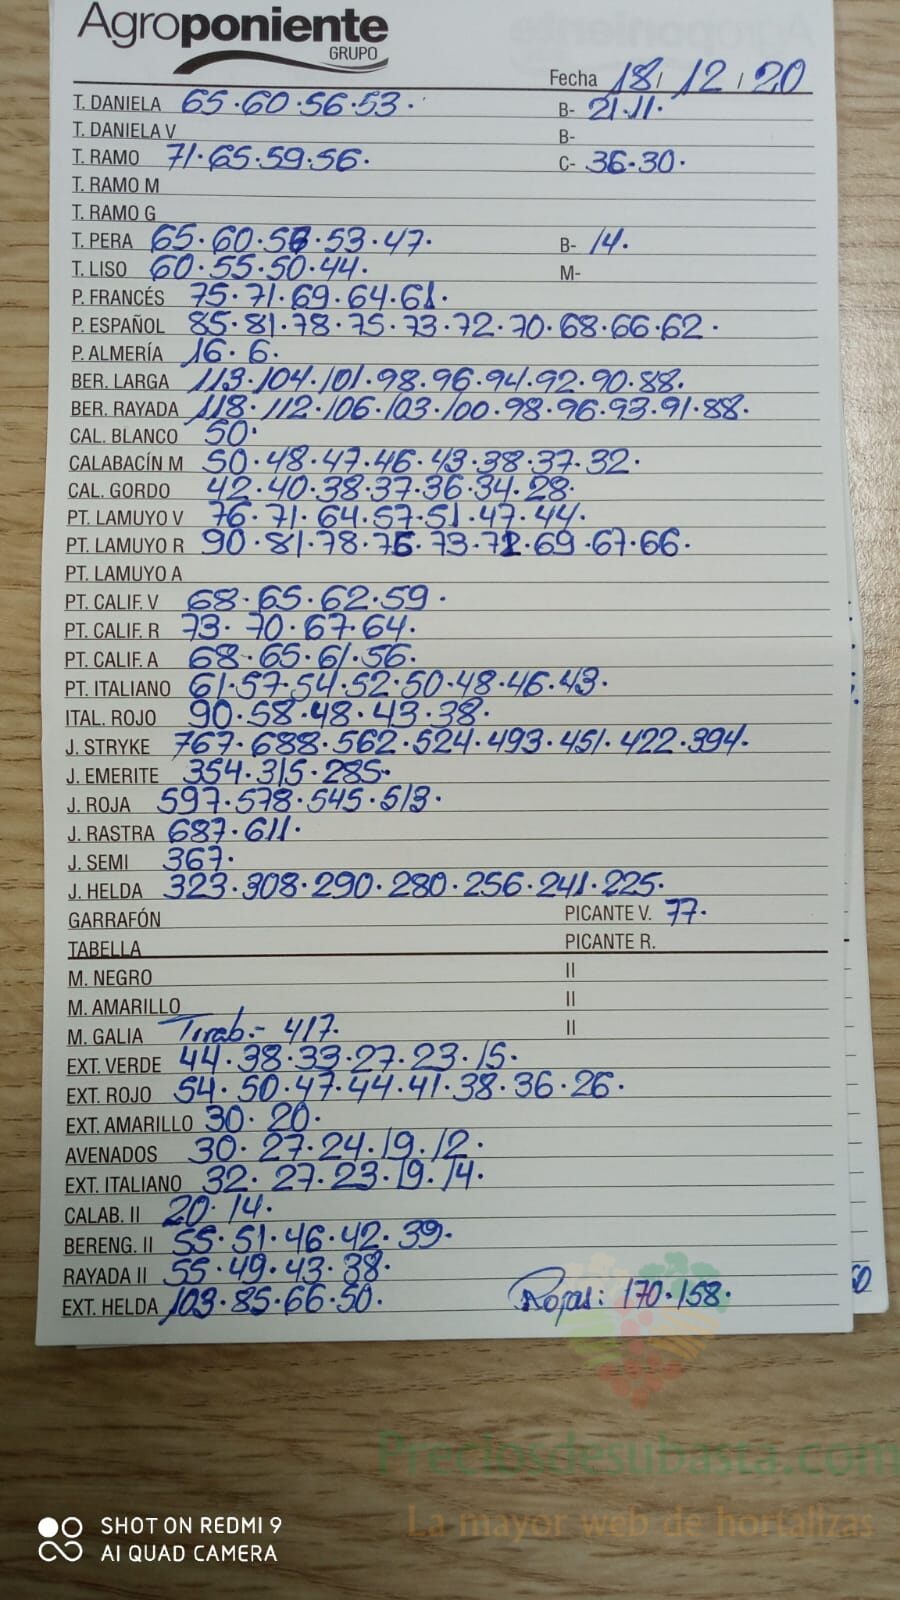 Agroponiente
GRUPO
Fecha 18 / 12 / 20
T. DANIELA 65.60.56.53. B- 21.11.
T. DANIELA V B-
T. RAMO 71.65.59.56. C- 36.30.
T. RAMO M
T. RAMO G
T. PERA 65.60.56.53.47. B- 14.
T. LISO 60.55.50.44. M-
P. FRANCÉS 75.71.69.64.61.
P. ESPAÑOL 85.81.78.75.73.72.70.68.66.62.
P. ALMERÍA 16.6.
BER. LARGA 113.104.101.98.96.94.92.90.88.
BER. RAYADA 118.112.106.103.100.98.96.93.91.88.
CAL. BLANCO 50.
CALABACÍN M 50.48.47.46.43.38.37.32.
CAL. GORDO 42.40.38.37.36.34.28.
PT. LAMUYO V 76.71.64.57.51.47.44.
PT. LAMUYO R 90.81.78.75.73.72.69.67.66.
PT. LAMUYO A
PT. CALIF. V 68.65.62.59.
PT. CALIF. R 73.70.67.64.
PT. CALIF. A 68.65.61.56.
PT. ITALIANO 61.57.54.52.50.48.46.43.
ITAL. ROJO 90.58.48.43.38.
J. STRYKE 767.688.562.524.493.451.422.394.
J. EMERITE 354.315.285.
J. ROJA 597.578.545.513.
J. RASTRA 687.611.
J. SEMI 367.
J. HELDA 323.308.290.280.256.241.225.
GARRAFÓN PICANTE V. 77.
TABELLA PICANTE R.
M. NEGRO II
M. AMARILLO II
M. GALIA Tirab.- 417. II
EXT. VERDE 44.38.33.27.23.15.
EXT. ROJO 54.50.47.44.41.38.36.26.
EXT. AMARILLO 30.20.
AVENADOS 30.27.24.19.12.
EXT. ITALIANO 32.27.23.19.14.
CALAB. II 20.14.
BERENG. II 55.51.46.42.39.
RAYADA II 55.49.43.38.
EXT. HELDA 103.85.66.50. Rojas: 170.158.
Preciosdesubasta.com
La mayor web de hortalizas
SHOT ON REDMI 9
AI QUAD CAMERA